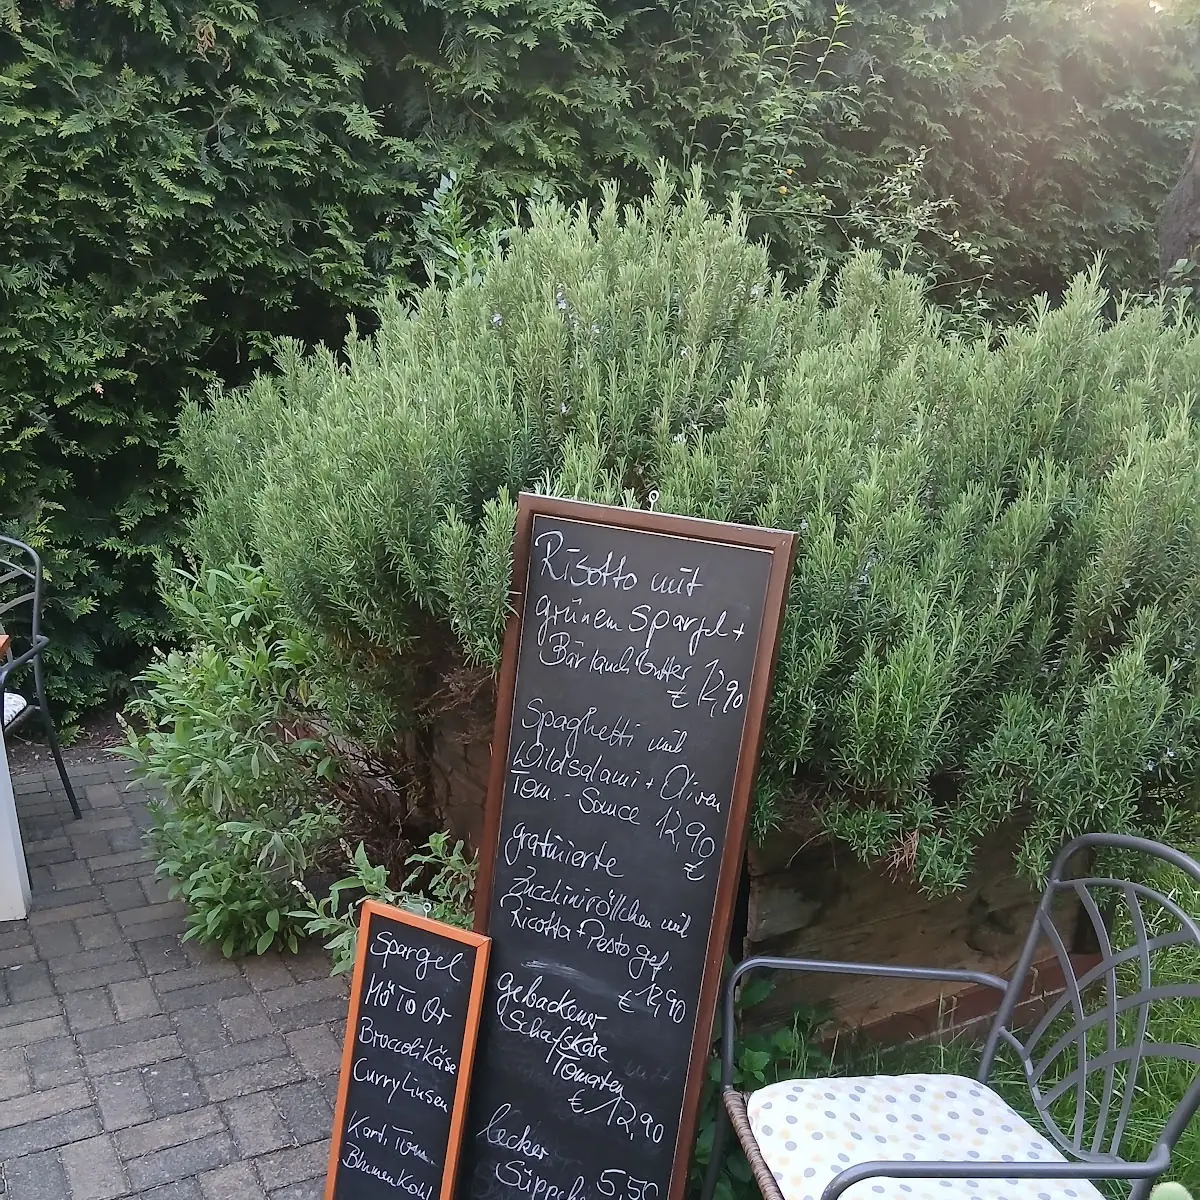 Risotto mit
grünem Spargel +
Bärlauchbutter
€ 12,90
Spaghetti mit
Wildsalami + Oliven
Tom. - Sauce 12,90
€
gratinierte
Zucchiniröllchen mit
Ricotta + Pesto gef.
€ 12,90
gebackener
Schafskäse
Tomaten
€ 12,90
lecker
Süppchen 5,50
Spargel
Mö To Or
Broccolikäse
Curry Linsen
Kart. Tom.
Blumenkohl